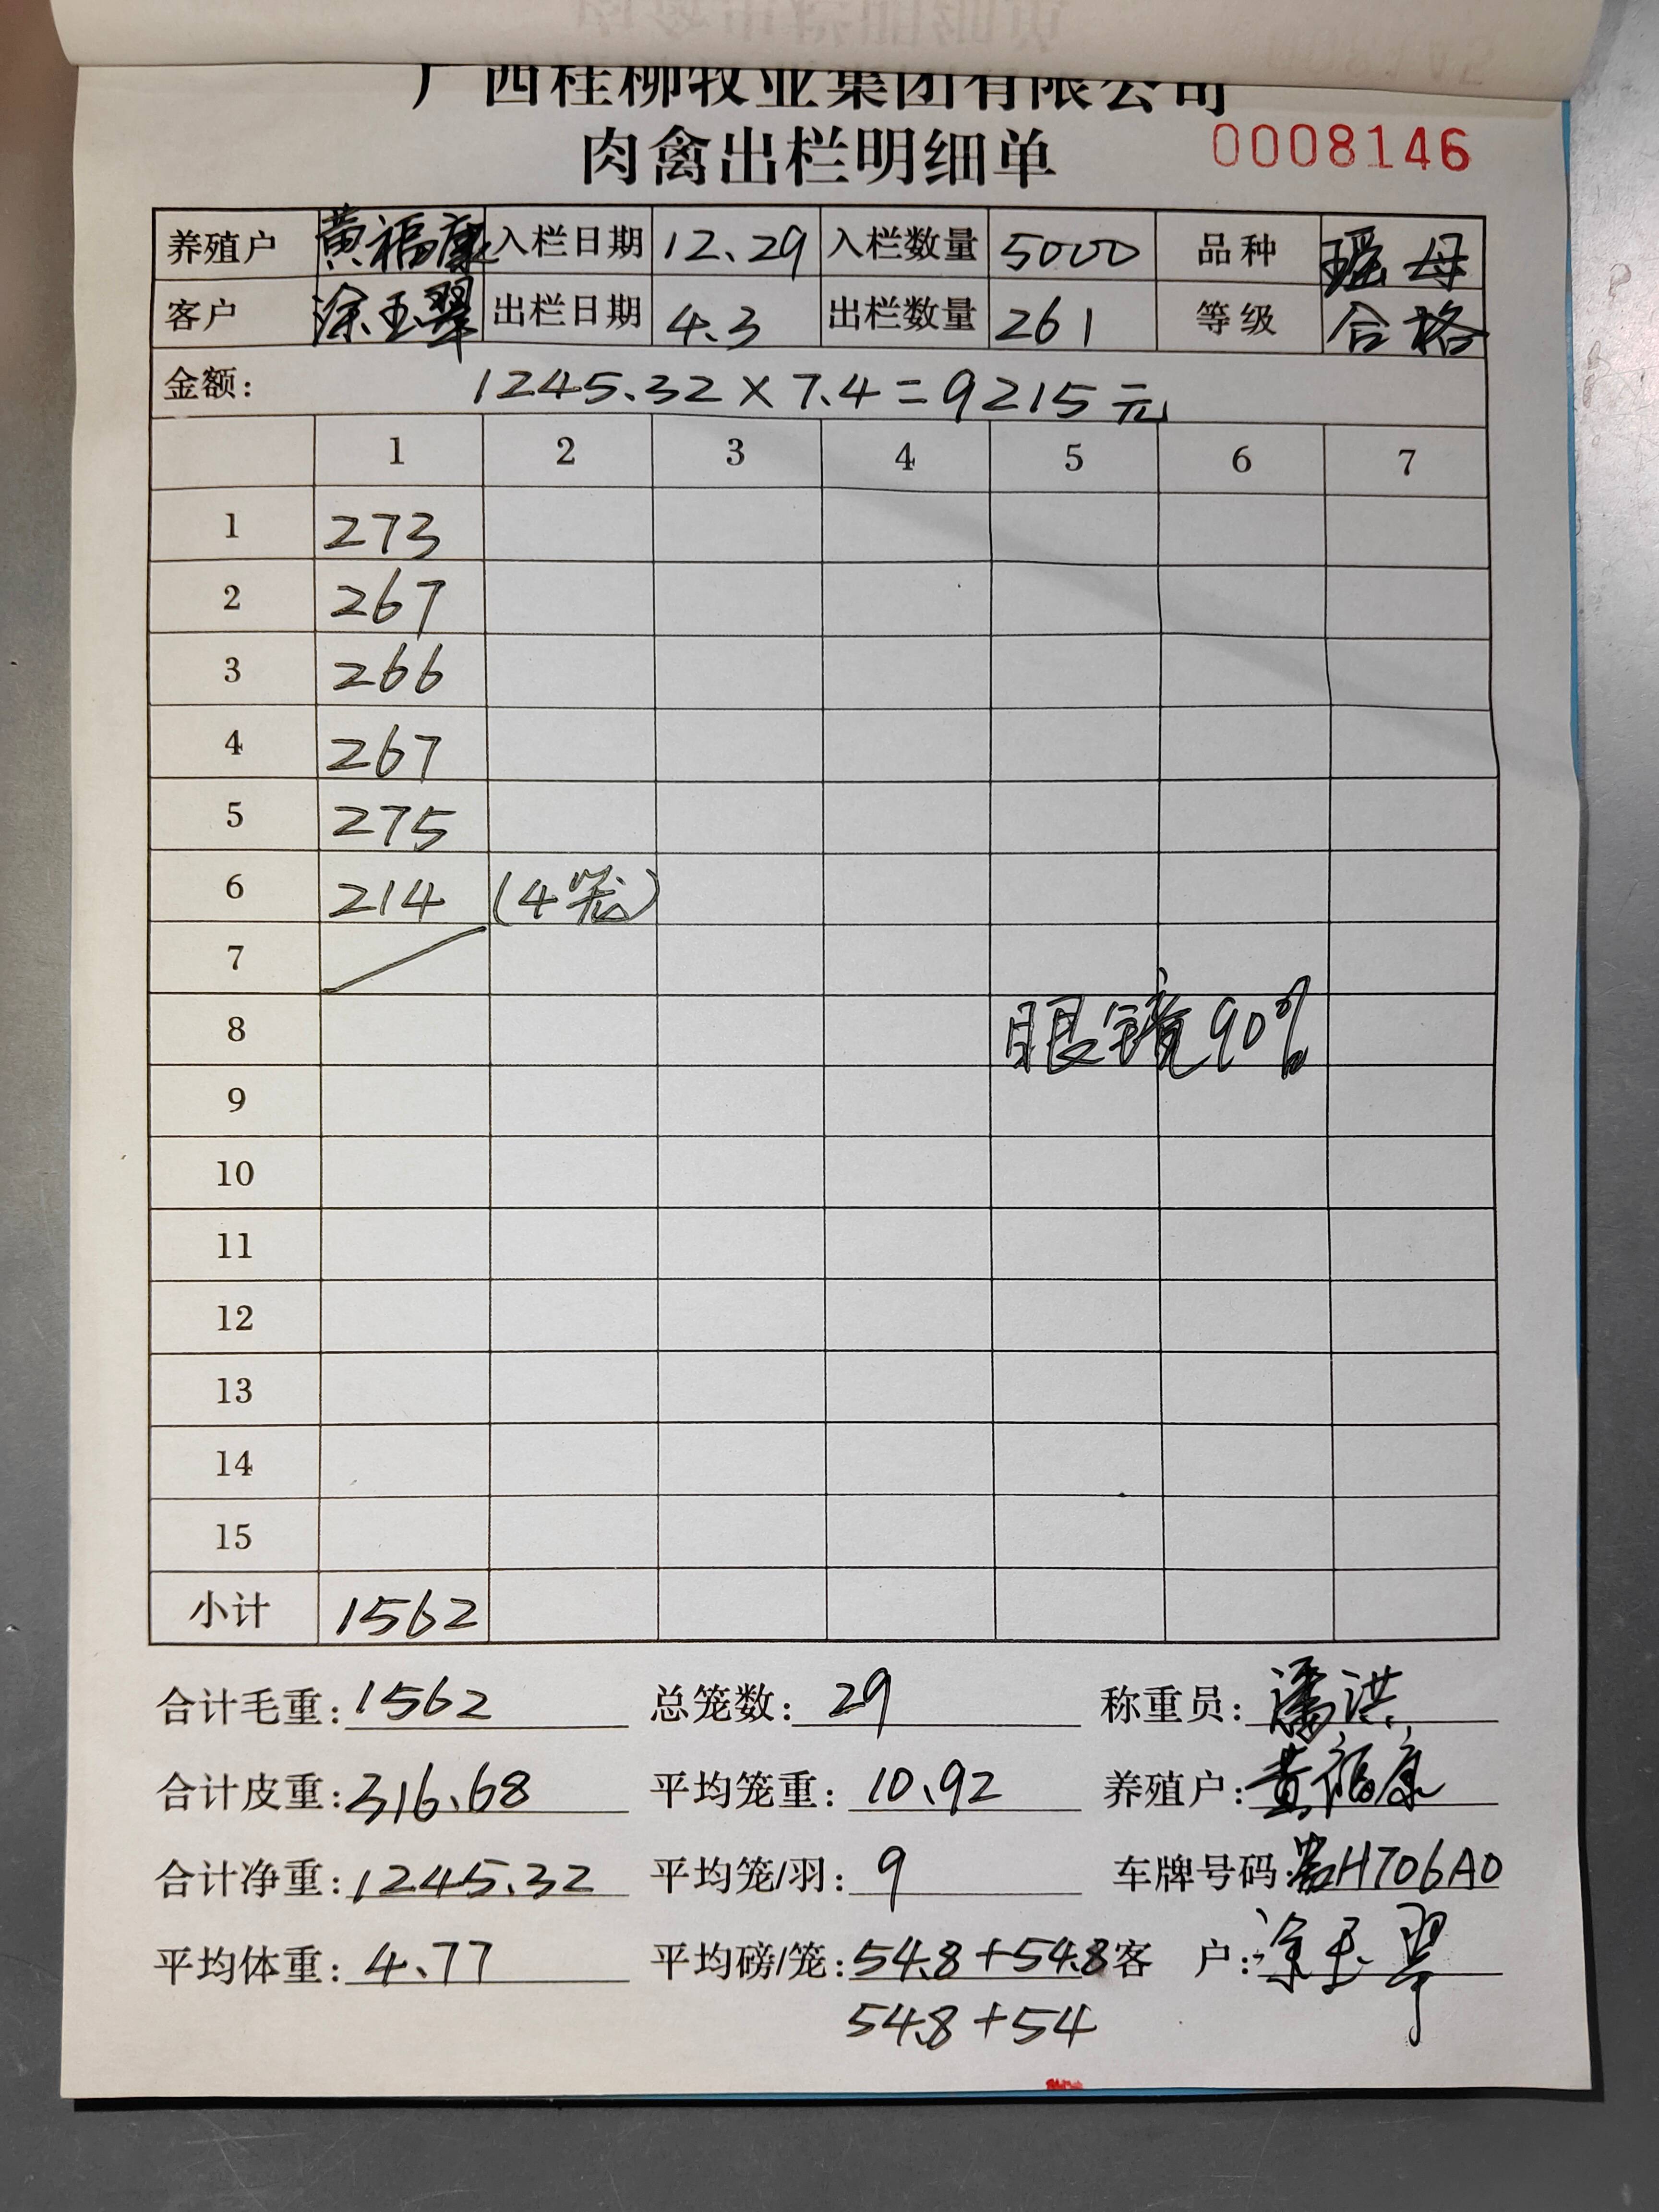 广西桂柳牧业集团有限公司
肉禽出栏明细单 0008146
养殖户 黄福康 入栏日期 12.29 入栏数量 5000 品种 瑶母
客户 涂玉翠 出栏日期 4.3 出栏数量 261 等级 合格
金额: 1245.32×7.4=9215元
1 2 3 4 5 6 7
1 273
2 267
3 266
4 267
5 275
6 214 (4笼)
7
8 眼镜90%
9
10
11
12
13
14
15
小计 1562
合计毛重: 1562 总笼数: 29 称重员: 潘洪
合计皮重: 316.68 平均笼重: 10.92 养殖户: 黄福康
合计净重: 1245.32 平均笼/羽: 9 车牌号码: H706A0
平均体重: 4.77 平均磅/笼: 54.8+54.8 客 户: 涂玉翠
54.8+54